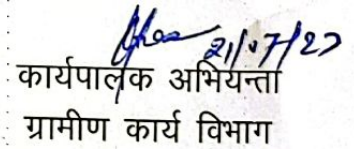 21/07/23
कार्यपालक अभियन्ता
ग्रामीण कार्य विभाग